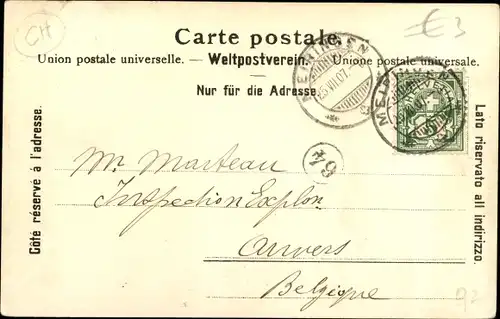 CH
€3
Carte postale.
Union postale universelle. — Weltpostverein. — Unione postale universale.
Nur für die Adresse.
MEIRINGEN
25.VII.07.
MEIRINGEN
Côté réservé à l'adresse.
Lato riservato all indirizzo.
64
Mr. Marteau
Inspection Explon.
Anvers
Belgique
92